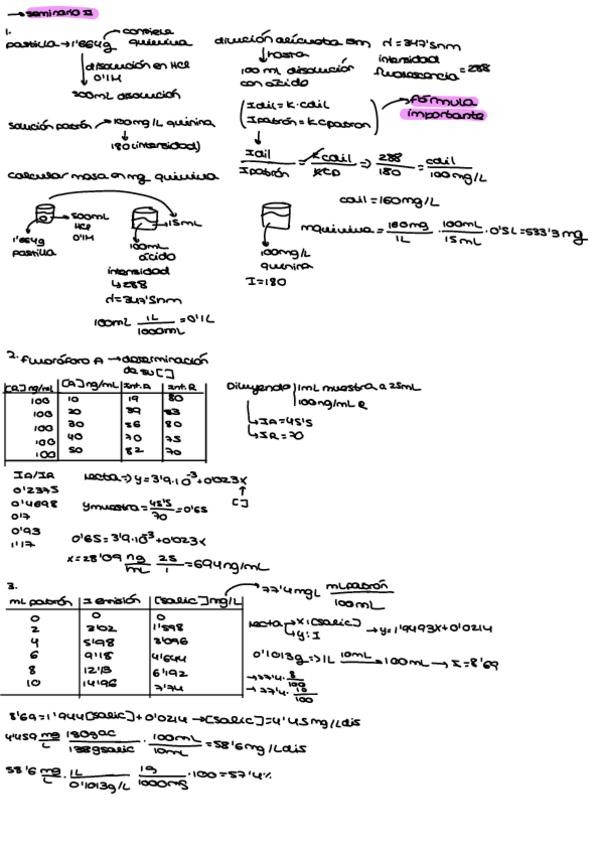 → seminario II
1.
pastilla → 1'664g contiene quinina
↓ disolución en HCl 0'1M
500mL disolución
dilución alícuota 15mL
↓ hasta
100 mL disolución con ácido
λ = 347'5nm
intensidad fluorescencia = 288
solución patrón → 100mg/L quinina
↓
180 (intensidad)
(Idil = K·Cdil
Ipatrón = K·Cpatrón) → fórmula importante
Idil/Ipatrón = KCdil/KCp ⇒ 288/180 = Cdil/100mg/L
Cdil = 160mg/L
calcular masa en mg quinina
1'664g pastilla
500mL HCl 0'1M
15mL
100mL ácido
intensidad
↳ 288
λ = 347'5nm
100mg/L quinina
I = 180
mquinina = 160mg/1L · 100mL/15mL · 0'5L = 533'3mg
100mL 1L/1000mL = 0'1L
2. Fluoróforo A → determinación de su [ ]
[R] ng/mL | [A] ng/mL | Int. A | Int. R
100 10 19 80
100 20 39 83
100 30 56 80
100 40 70 75
100 50 82 70
Diluyendo 1mL muestra a 25mL
100ng/mL R
↳ IA = 45'5
↳ IR = 70
IA/IR
0'2375
0'4698
0'7
0'93
1'17
recta → y = 3'9·10⁻³ + 0'023x
↑
[ ]
ymuestra = 45'5/70 = 0'65
0'65 = 3'9·10⁻³ + 0'023x
x = 28'09 ng/mL · 25/1 = 694ng/mL
3.
mL patrón | I emisión | [salic] mg/L → 77'4mg/L mLpatrón/100mL
0 0 0
2 3'02 1'598
4 5'98 3'096
6 9'18 4'644
8 12'13 6'192
10 14'96 7'74
recta → x: [salic]
→ y: I
→ y = 1'9493x + 0'0214
0'1013g ⇒ 1L 10mL → 100mL → I = 8'69
→ 77'4 · 8/100
→ 77'4 · 10/100
8'69 = 1'944[salic] + 0'0214 → [salic] = 4'45mg/L dis
4'459 mg/L 180gac/138gsalic · 100mL/10mL = 58'6mg/L dis
58'6 mg/L · 1L/0'1013g/L 1g/1000mg · 100 = 57'4%